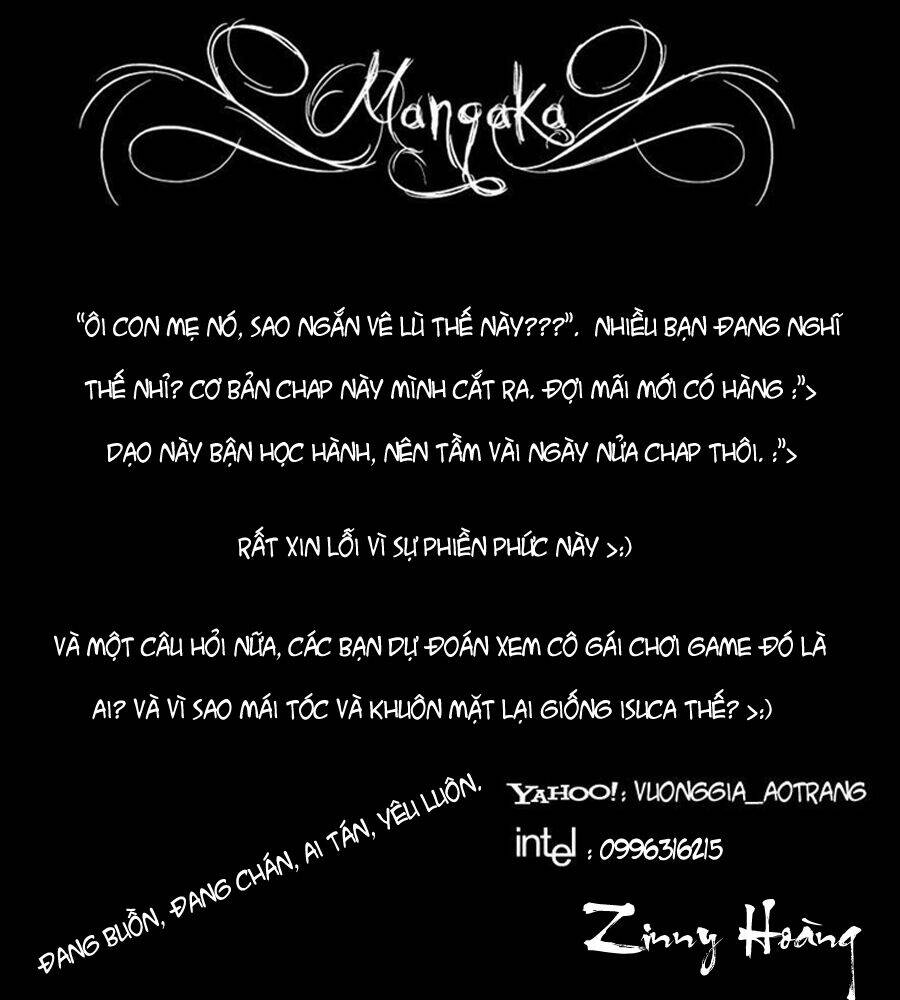 Mangaka
"ÔI CON MẸ NÓ, SAO NGẮN VÊ LÙ THẾ NÀY???". NHIỀU BẠN ĐANG NGHĨ
THẾ NHỈ? CƠ BẢN CHAP NÀY MÌNH CẮT RA. ĐỢI MÃI MỚI CÓ HÀNG :">
DẠO NÀY BẬN HỌC HÀNH, NÊN TẦM VÀI NGÀY NỬA CHAP THÔI. :">
RẤT XIN LỖI VÌ SỰ PHIỀN PHỨC NÀY >:)
VÀ MỘT CÂU HỎI NỮA, CÁC BẠN DỰ ĐOÁN XEM CÔ GÁI CHƠI GAME ĐÓ LÀ
AI? VÀ VÌ SAO MÁI TÓC VÀ KHUÔN MẶT LẠI GIỐNG ISUCA THẾ? >:)
ĐANG BUỒN, ĐANG CHÁN, AI TÁN, YÊU LUÔN.
YAHOO!: VUONGGIA_AOTRANG
intel : 0996316215
Zinny Hoàng